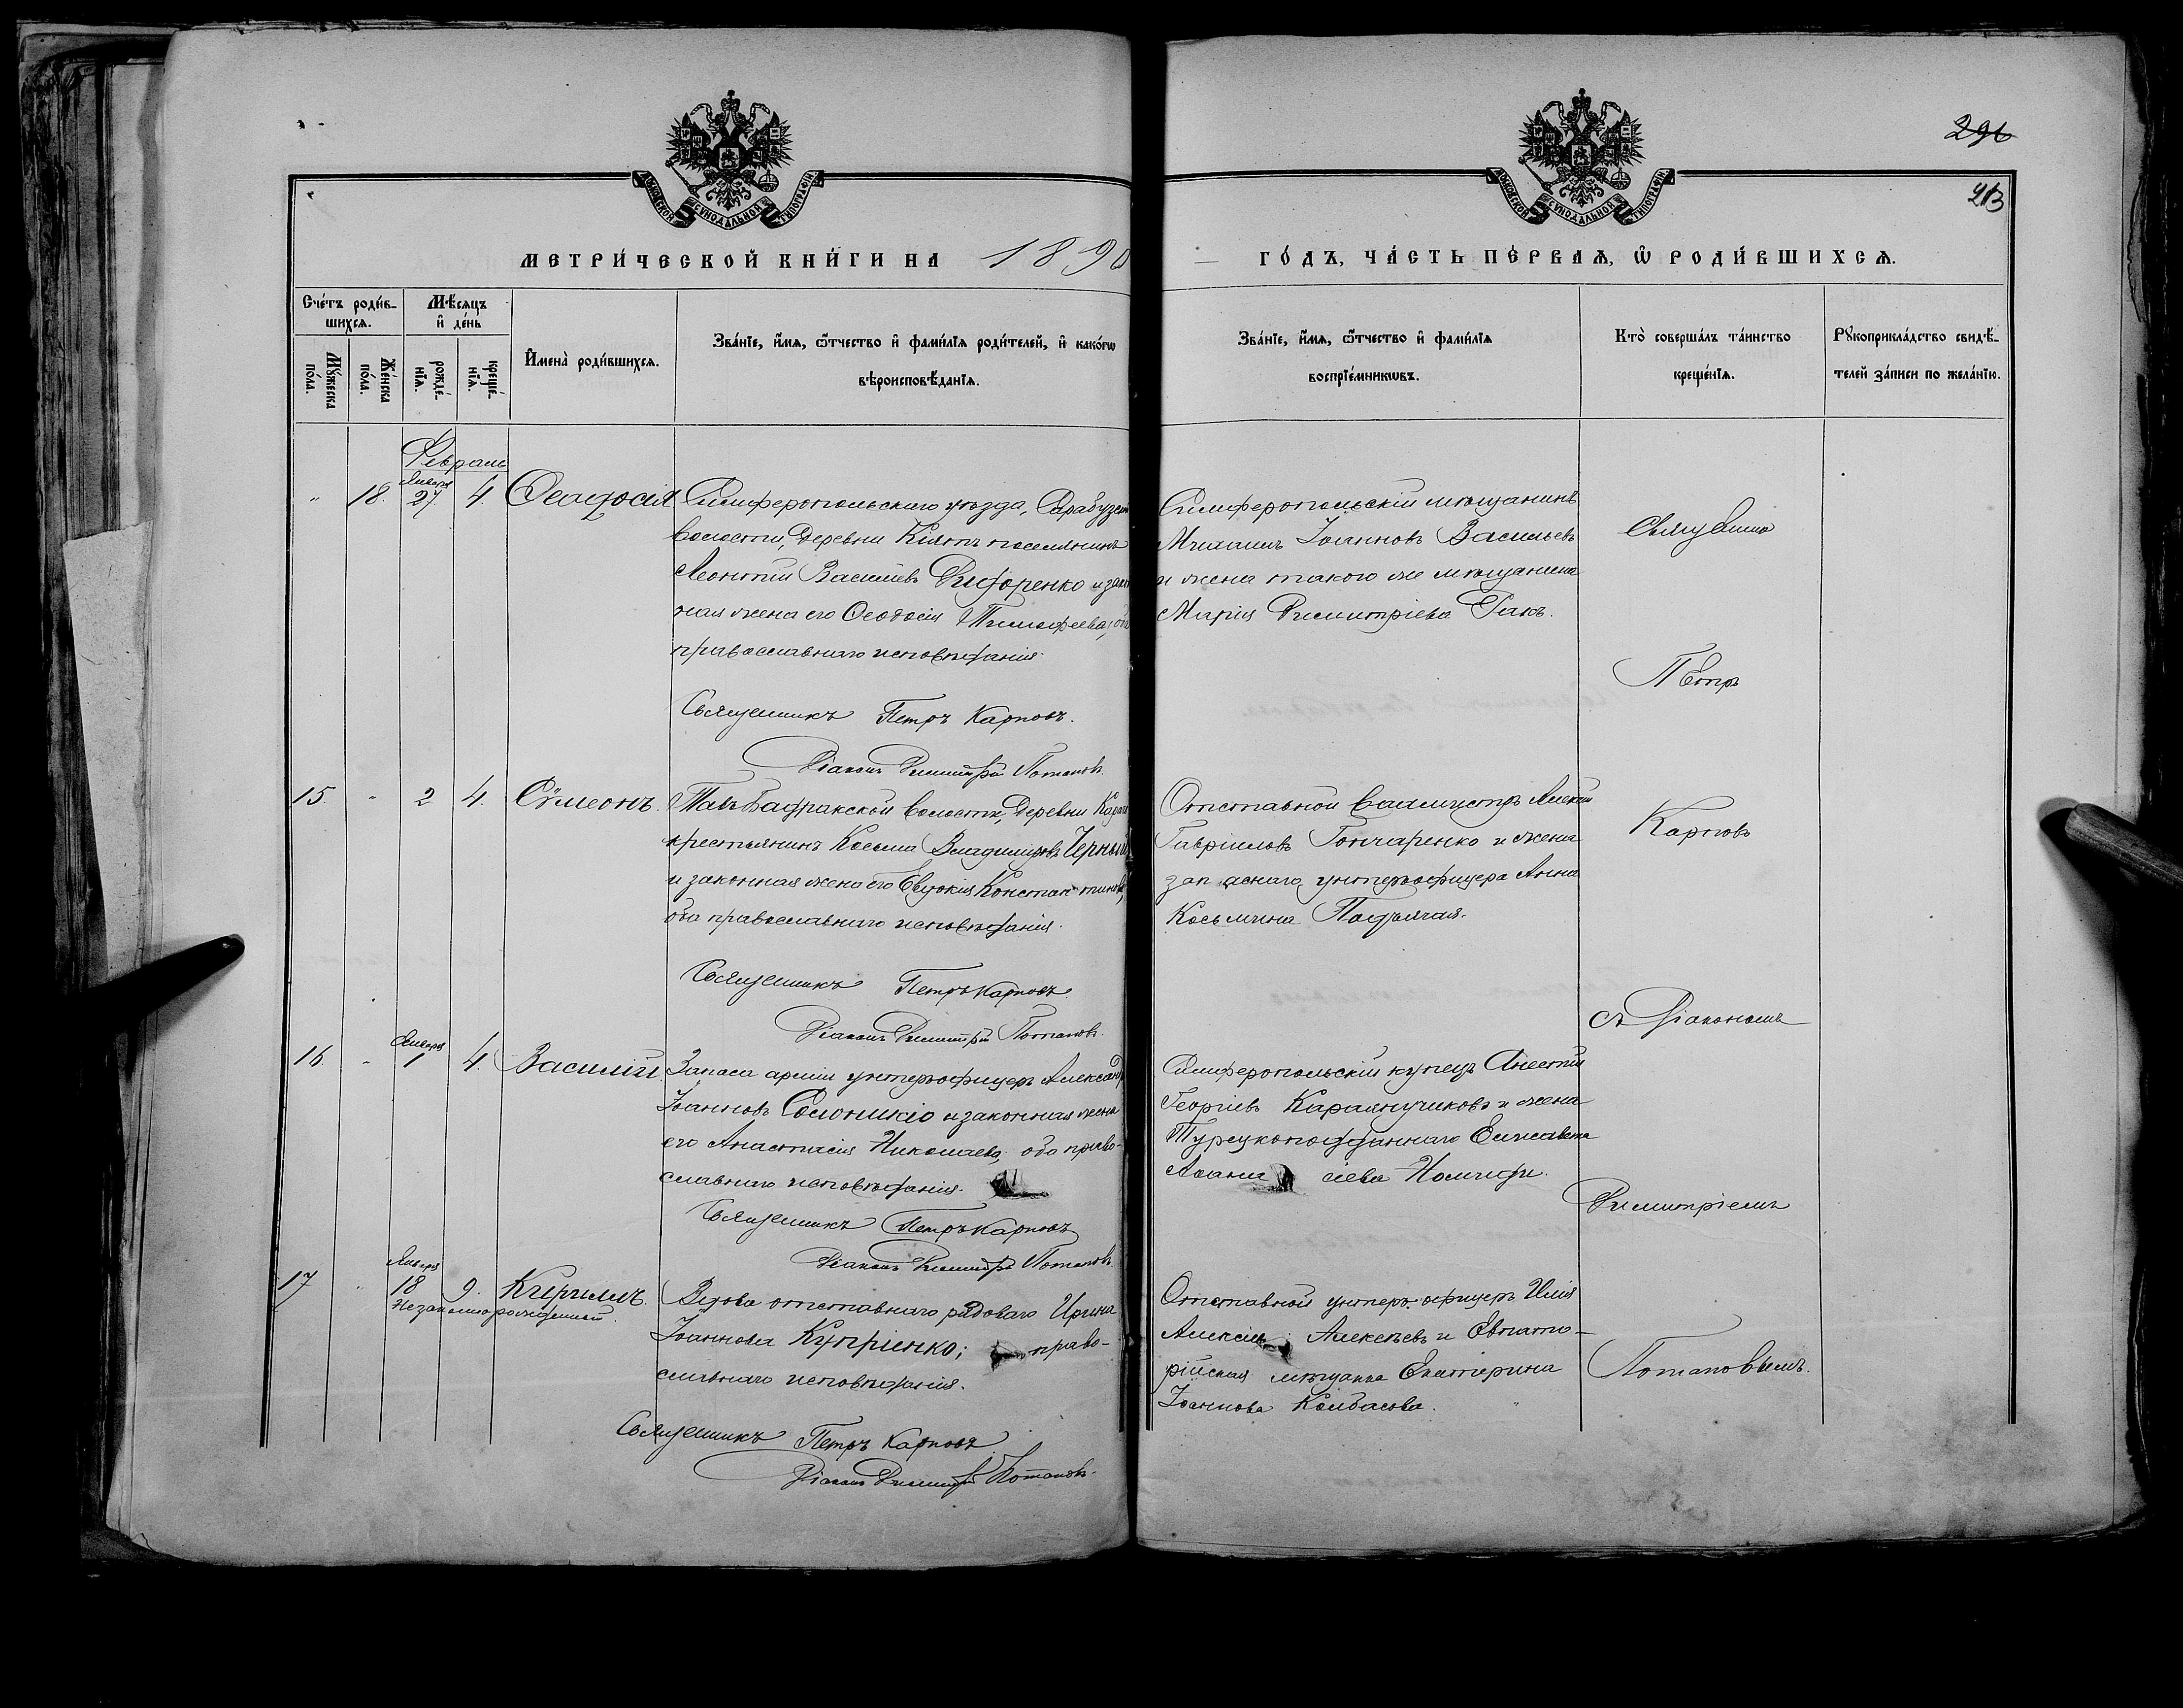 296
213
МОСКОВСКОЙ СѴНОДАЛЬНОЙ ТИПОГРАФІИ
МОСКОВСКОЙ СѴНОДАЛЬНОЙ ТИПОГРАФІИ
МЕТРИ́ЧЕСКОЙ КНИ́ГИ НА 1890 ГО́ДЪ, ЧА́СТЬ ПЕ́РВАѦ, Ѡ҆ РОДИ́ВШИХСѦ.
Сче́тъ роди́в-
шихсѧ.
Мѣ́сѧцъ
и҆ де́нь
Мꙋ́жеска
по́ла.
Же́нска
по́ла.
рожде́-
нїѧ.
креще́-
нїѧ.
И҆мена̀ роди́вшихсѧ.
Зва́нїе, и҆́мѧ, ѻ҆́тчество и҆ фами́лїѧ роди́телей, и҆ како́гѡ
вѣроисповѣ́данїѧ.
Зва́нїе, и҆́мѧ, ѻ҆́тчество и҆ фами́лїѧ
воспрїе́мникѡвъ.
Кто̀ соверша́лъ та́инство
креще́нїѧ.
Рꙋкоприкла́дство свидѣ́-
телей за́писи по жела́нїю.
Февраль
" 18. Января 27. 4. Ѳеодосія
Симферопольскаго уѣзда, Сарабузск
волости, деревни Кіятъ поселянинъ
Леонтій Василіевъ и зако
ная жена его Ѳеодосія Тимофеева, оба
православнаго исповѣданія.
Священникъ Петръ Карповъ.
Діаконъ Димитрій Потаповъ.
Симферопольскій мѣщанинъ
Михаилъ Іоанновъ Васильевъ
и жена такого же мѣщанина
Марія Димитріева Гакъ.
Священник
Петръ
15. " 2 4. Сѵмеонъ.
Тавъ Бадракской волости, деревни
крестьянинъ Косьма Владиміровъ Черный
и законная жена его Евдокія Константинова,
оба православнаго исповѣданія.
Священникъ Петръ Карповъ.
Діаконъ Димитрій Потаповъ.
Отставной вахмистръ Алексій
Гавріиловъ Гончаренко и жена
запаснаго унтеръ офицера Анна
Косьмина
Карповъ
съ Діакономъ
16. " Января 1 4. Василій.
Запаса арміи унтеръ офицеръ Александръ
Іоанновъ и законная жена
его Анастасія Николаева, оба право-
славнаго исповѣданія.
Священникъ Петръ Карповъ
Діаконъ Димитрій Потаповъ.
Симферопольскій купецъ Анестій
Георгіевъ и жена
Турецкоподданнаго Елисавета
Димитріемъ
17 " Января 18 9. Кириллъ.
Незаконнорожденный.
Вдова отставнаго рядоваго Ирина
Іоаннова Купріенко; право-
славнаго исповѣданія.
Священникъ Петръ Карповъ
Діаконъ Димитрій Потаповъ.
Отставной унтеръ-офицеръ Илія
Алексѣевъ и Евпато-
рійская мѣщанка Екатерина
Іоаннова Колбасова.
Потаповымъ.